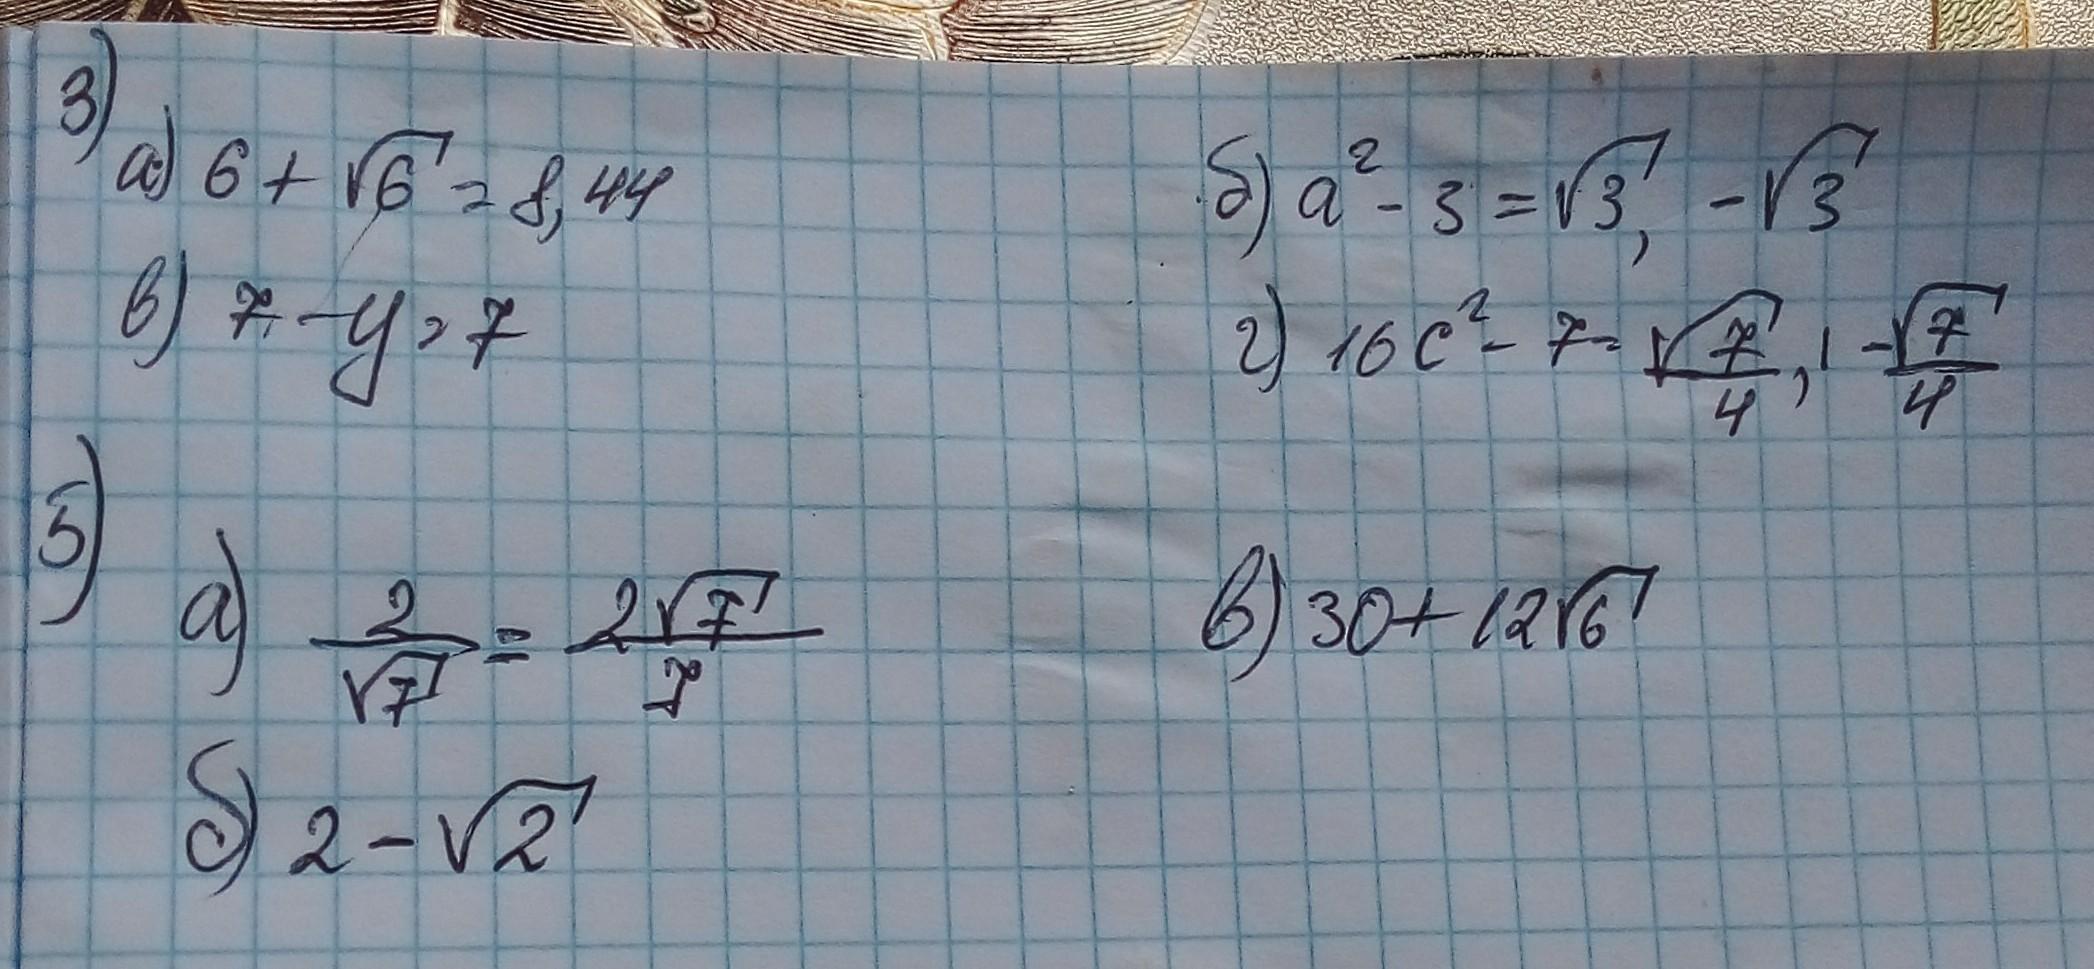 3)
а) 6 + √6 = 8,44
б) a² - 3 = √3, -√3
в) 7 - y = 7
г) 16c² - 7 = √7/4, -√7/4
5)
а) 2/√7 = 2√7/7
в) 30 + 12√6
б) 2 - √2